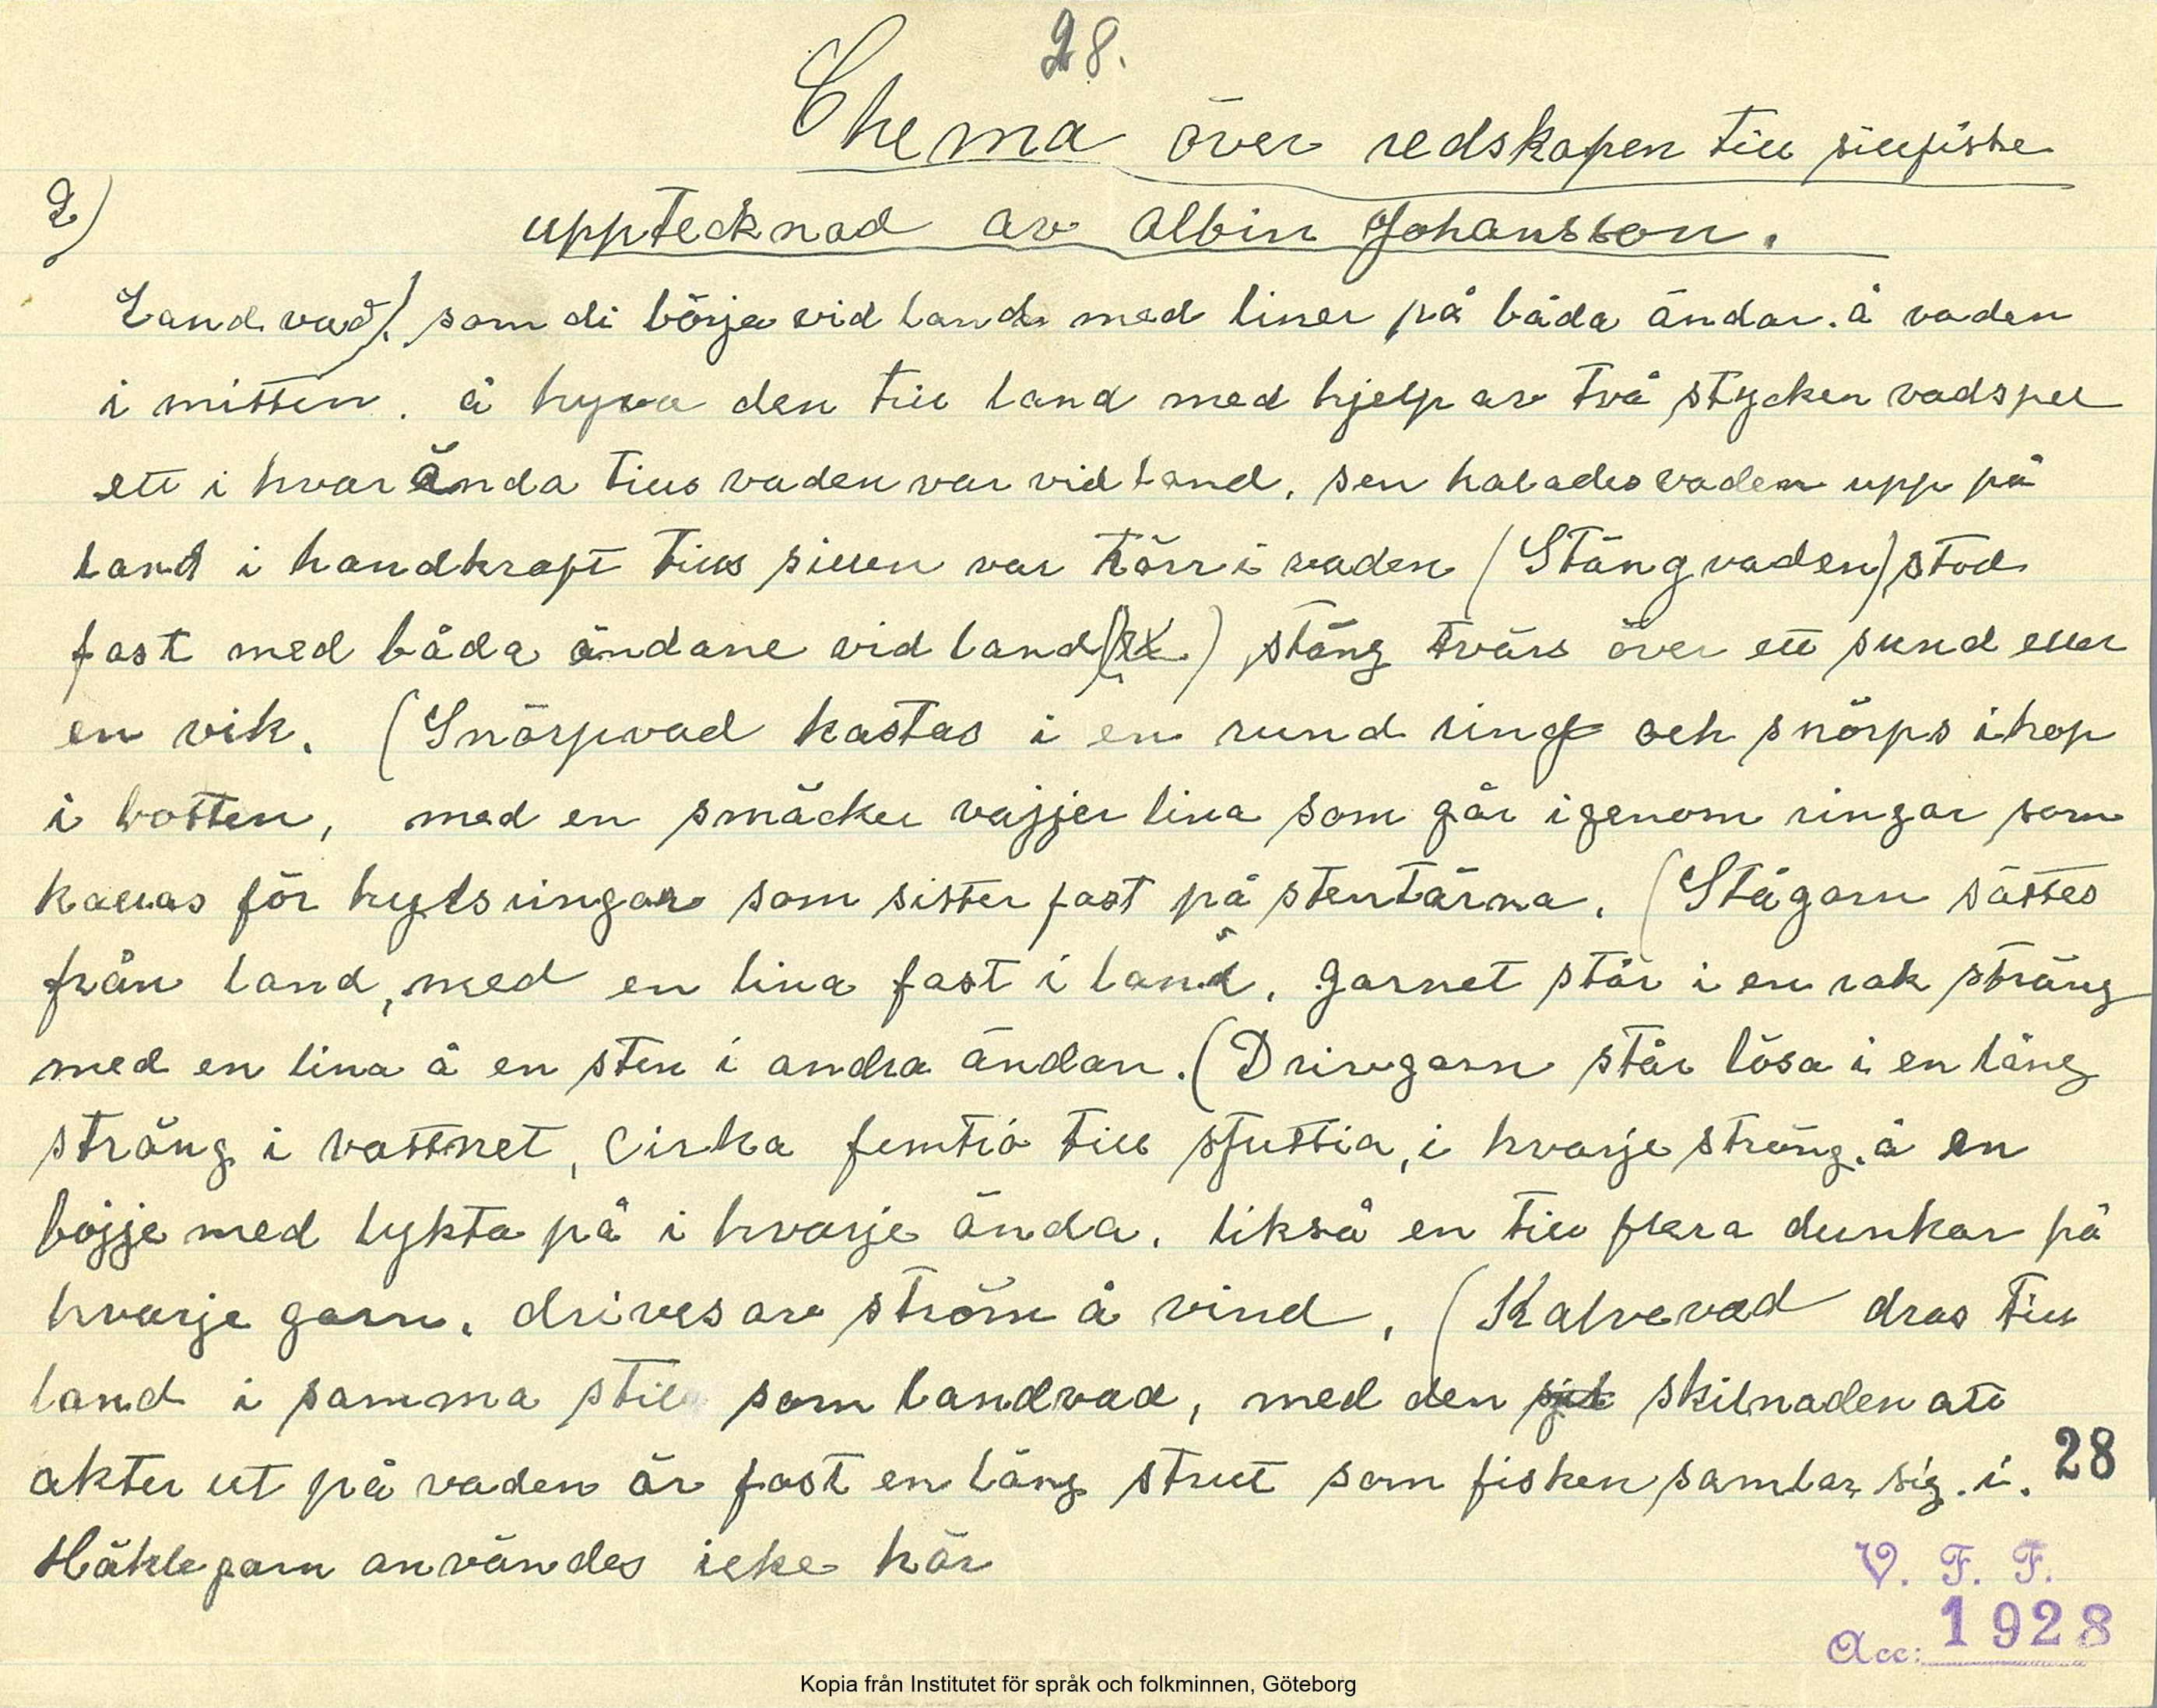 28.
Chema över redskapen till sillfiske
2)
upptecknad av Albin Johansson.
Landvad) som di börja vid land med liner på båda ändar. å vaden
i mitten. å hyva den till land med hjelp av två stycken vadspel
ett i hvar ända tills vaden var vid land, sen halades vaden upp på
land i handkraft tills sillen var törr i vaden (Stängvaden) stod
fast med båda ändane vid land ) stäng tvärs över ett sund eller
en vik. (Snörpvad kastas i en rund ring och snörps ihop
i botten, med en smäcker vajjer lina som går igenom ringar som
kallas för hylsringar som sitter fast på stentärna. (Stågarn sättes
från land, med en lina fast i land. garnet står i en rak sträng
med en lina å en sten i andra ändan. (Drivgarn står lösa i en lång
sträng i vattnet, cirka femtio till sjuttio, i hvarje sträng. å en
bojje med lykta på i hvarje ända. likså en till flera dunkar på
hvarje garn. drives av ström å vind. (Kalvevad dras till
land i samma stil som landvad, med den skilnaden att
akter ut på vaden är fast en lång strut som fisken samlar sig. i.
28
Häklegarn användes icke här
V. F. F.
Acc: 1928
Kopia från Institutet för språk och folkminnen, Göteborg